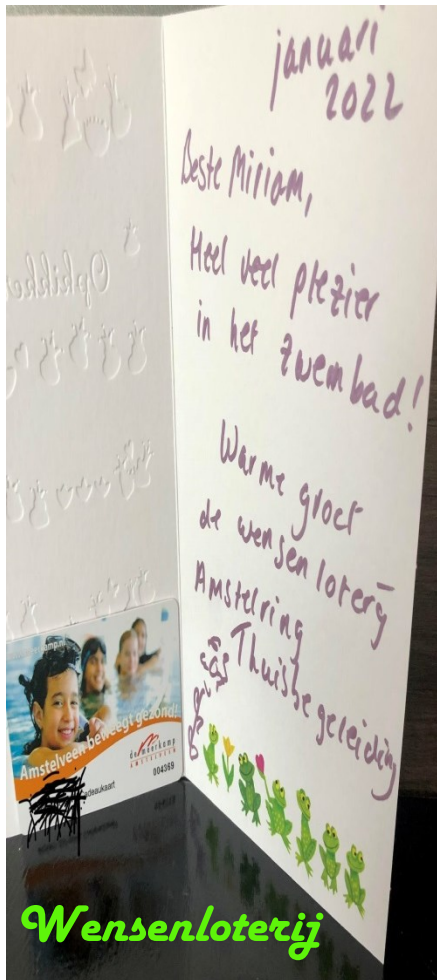 januari
2022
Beste Miriam,
Heel veel plezier
in het zwembad!
Warme groet
de wensenloterij
Amstelring
Thuisbegeleiding
Amstelveen beweegt gezond!
de meerkamp
AMSTELVEEN
004369
adeaukaart
Wensenloterij